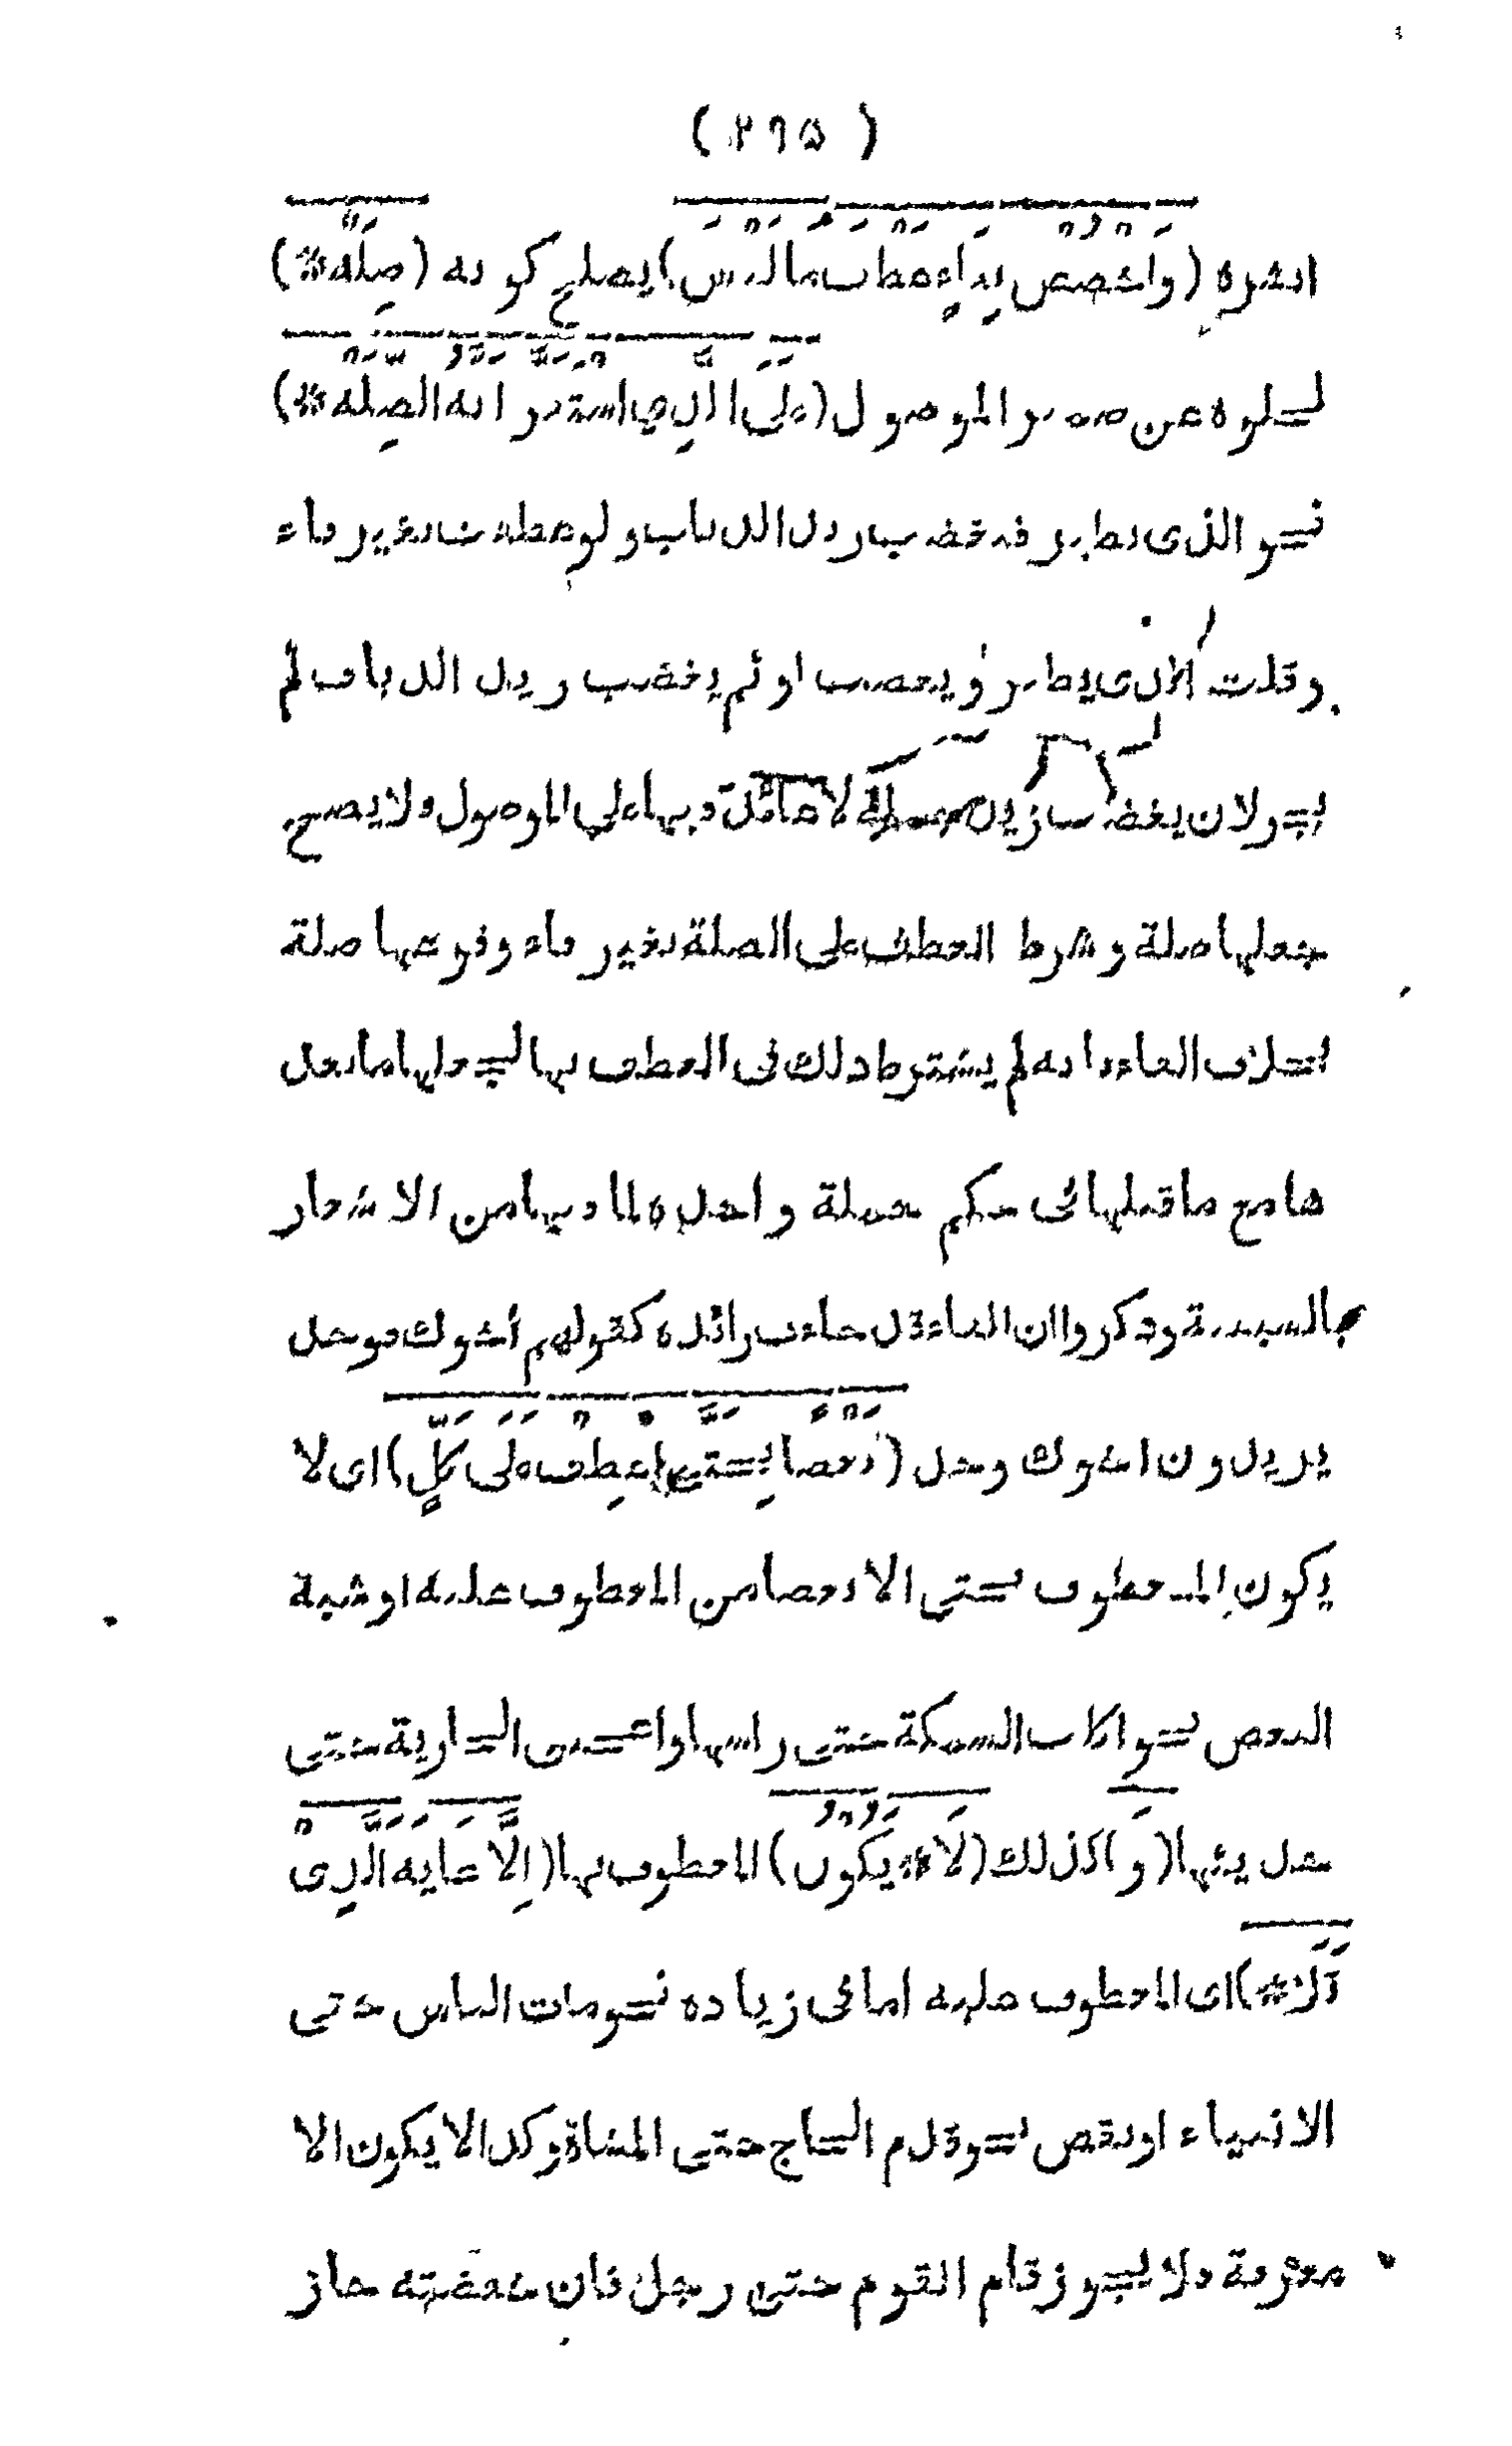 ( ٢٦٥ )
(واخصص بفاءٍ عطف ما ليس) يصلح كونه (صِلَه *)
لخلوه عن ضمير الموصول (على الذِي استقر انه الصِله *)
نحو الذى يطير فيغضب زيد الذباب ولو عطفت بغير فاء
وقلت الذى يطير ويغضب او ثم يغضب زيد الذباب لم
يجز لان يغضب زيد جملة لا عائد فيها على الموصول ولا يصح
جعلها صلة وشرط العطف على الصلة بغير فاء وقوعها صلة
بخلاف الفاء فانه لم يشترط ذلك فى العطف بها لجعلها ما بعد
ها مع ما قبلها فى حكم جملة واحده لما فيها من الاشعار
بالسببية وذكروا ان الفاء قد جاءت زائده كقولهم أخوك فوجد
يريدون اخوك وجد (بعضا بِحتى اعطِف على كلٍ) اى لا
يكون المعطوف بحتى الا بعضا من المعطوف عليه او شبه
البعض نحو اكلت السمكة حتى راسها واعجبتنى الجارية حتى
حديثها (و) كذلك (لَا * يكون) المعطوف بها (اِلَّا غاية الذِى
تَلَا *) اى المعطوف عليه اما فى زياده نحو مات الناس حتى
الانبياء او نقص نحو قدم الحجاج حتى المشاة وكذا لا يكون الا
معرفة فلا يجوز قام القوم حتى رجل فان خففته جاز